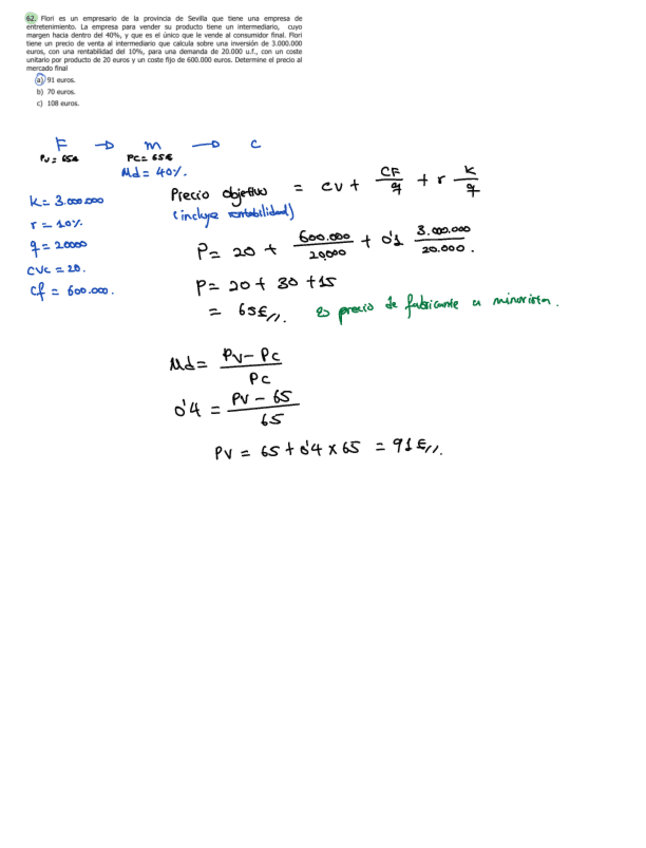 62. Flori es un empresario de la provincia de Sevilla que tiene una empresa de
entretenimiento. La empresa para vender su producto tiene un intermediario, cuyo
margen hacia dentro del 40%, y que es el único que le vende al consumidor final. Flori
tiene un precio de venta al intermediario que calcula sobre una inversión de 3.000.000
euros, con una rentabilidad del 10%, para una demanda de 20.000 u.f., con un coste
unitario por producto de 20 euros y un coste fijo de 600.000 euros. Determine el precio al
mercado final
a) 91 euros.
b) 70 euros.
c) 108 euros.
F → m → c
Pv = 65€ PC = 65€
Md = 40%.
K = 3.000.000
r = 10%
q = 20000
cvc = 20.
Cf = 600.000.
Precio objetivo = cv + CF/q + r K/q
(incluye rentabilidad)
P = 20 + 600.000/20.000 + 0'1 3.000.000/20.000.
P = 20 + 30 + 15
= 65€//. es precio de fabricante a minorista.
Md = Pv - Pc / Pc
0'4 = Pv - 65 / 65
Pv = 65 + 0'4 x 65 = 91€//.